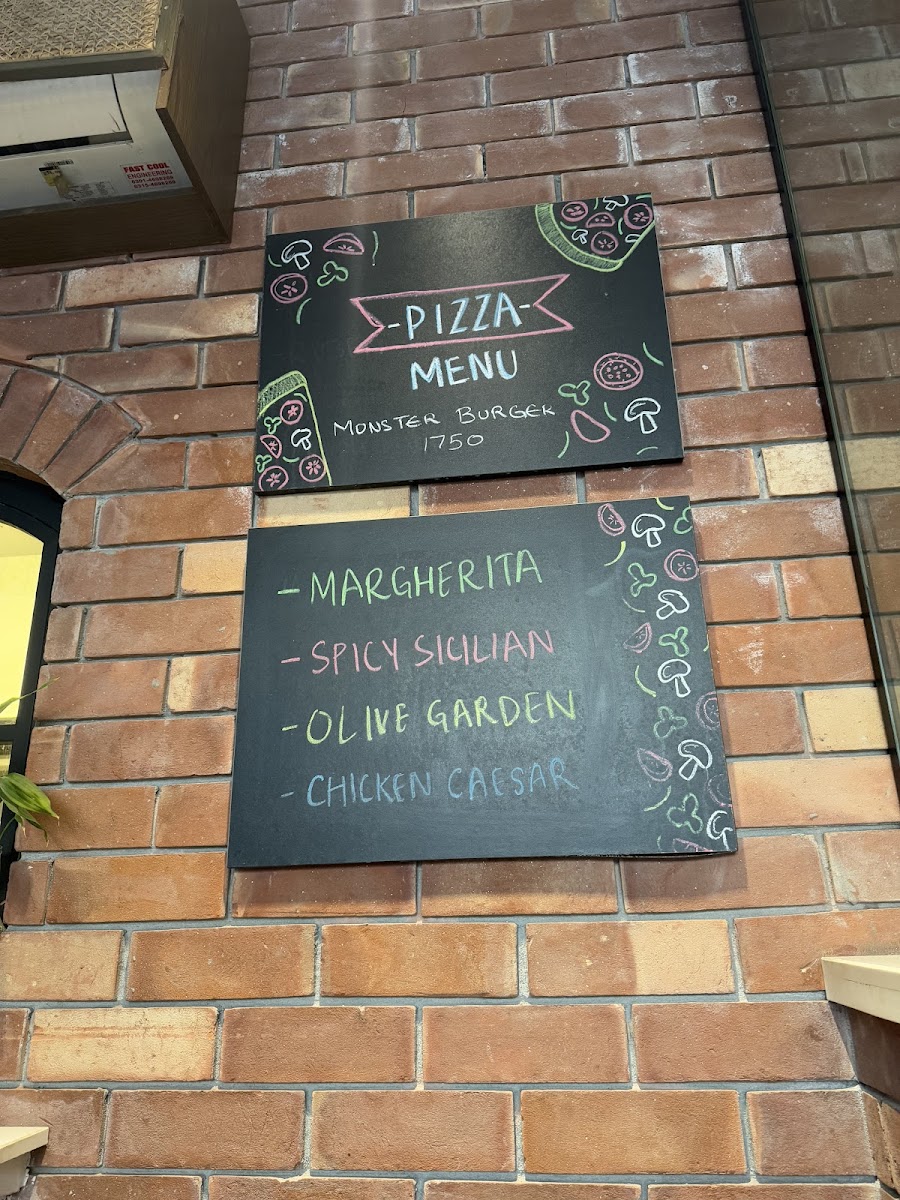 FAST COOL
ENGINEERING
-PIZZA-
MENU
MONSTER BURGER
1750
- MARGHERITA
- SPICY SICILIAN
- OLIVE GARDEN
- CHICKEN CAESAR